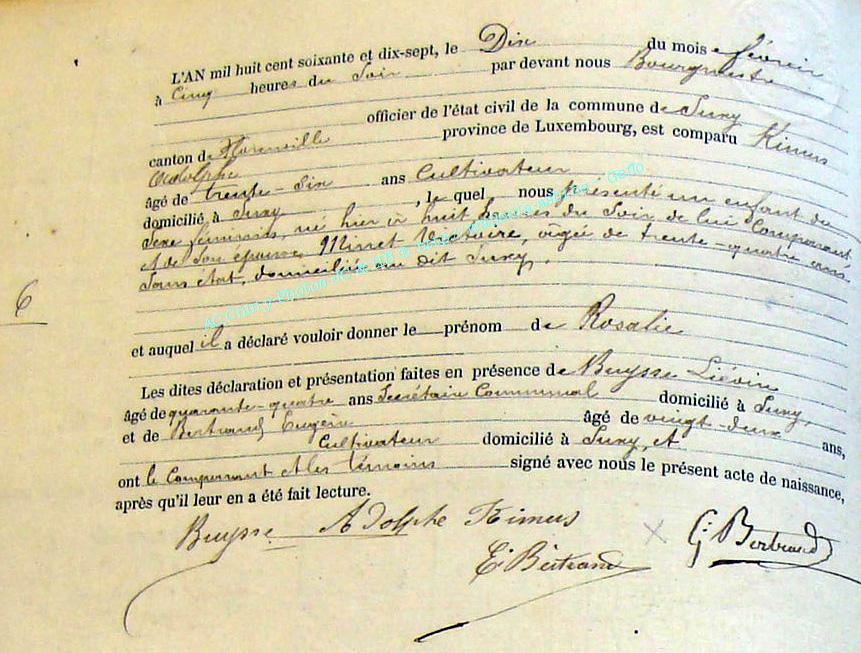 L'AN mil huit cent soixante et dix-sept, le Dix du mois de février
à Cinq heures du Soir par devant nous Bourgmestre
officier de l'état civil de la commune de Suxy
canton de Florenville province de Luxembourg, est comparu Kimus
Adolphe
âgé de trente-six ans Cultivateur
domicilié à Suxy, le quel nous présenté un enfant du
sexe féminin, né hier à huit heures du Soir de lui Comparant
et de Son épouse Minet Victoire, âgée de trente-quatre ans
Sans état, domiciliée au dit Suxy.
6
et auquel il a déclaré vouloir donner le prénom de Rosalie
Les dites déclaration et présentation faites en présence de Buysse Liévin
âgé de quarante-quatre ans Secrétaire Communal domicilié à Suxy,
et de Bertrand Eugène âgé de vingt-deux ans,
Cultivateur domicilié à Suxy, et
ont le Comparant et les témoins signé avec nous le présent acte de naissance,
après qu'il leur en a été fait lecture.
Buysse Adolphe Kimus
E. Bertrand
G. Bertrand